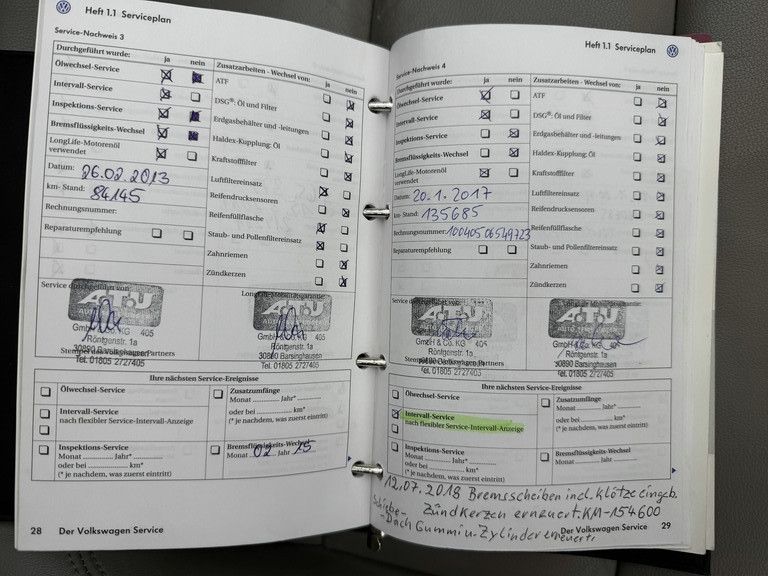 Heft 1.1 Serviceplan
Service-Nachweis 3
Durchgeführt wurde: ja nein
Ölwechsel-Service
Intervall-Service
Inspektions-Service
Bremsflüssigkeits-Wechsel
LongLife-Motorenöl
verwendet
Datum: 26.02.2013
km- Stand: 84145
Rechnungsnummer:
Reparaturempfehlung
Zusatzarbeiten - Wechsel von: ja nein
ATF
DSG®: Öl und Filter
Erdgasbehälter und -leitungen
Haldex-Kupplung: Öl
Kraftstofffilter
Luftfiltereinsatz
Reifendrucksensoren
Reifenfüllflasche
Staub- und Pollenfiltereinsatz
Zahnriemen
Zündkerzen
Service durchgeführt von:
LongLife-Mobilitätsgarantie
A.T.U
GmbH & Co. KG 405
Röntgenstr. 1a
30890 Barsinghausen
Stempel des Volkswagen Partners
Tel. 01805 2727405
A.T.U
GmbH & Co. KG 405
Röntgenstr. 1a
30890 Barsinghausen
Tel. 01805 2727405
Ihre nächsten Service-Ereignisse
Ölwechsel-Service
Intervall-Service
nach flexibler Service-Intervall-Anzeige
Inspektions-Service
Monat .......... Jahr* ..........
oder bei .......... km*
(* je nachdem, was zuerst eintritt)
Zusatzumfänge
Monat .......... Jahr* ..........
oder bei .......... km*
(* je nachdem, was zuerst eintritt)
Bremsflüssigkeits-Wechsel
Monat 02 Jahr 15
28 Der Volkswagen Service
Heft 1.1 Serviceplan
Service-Nachweis 4
Durchgeführt wurde: ja nein
Ölwechsel-Service
Intervall-Service
Inspektions-Service
Bremsflüssigkeits-Wechsel
LongLife-Motorenöl
verwendet
Datum: 20.1.2017
km- Stand: 135685
Rechnungsnummer: 10040506549723
Reparaturempfehlung
Zusatzarbeiten - Wechsel von: ja nein
ATF
DSG®: Öl und Filter
Erdgasbehälter und -leitungen
Haldex-Kupplung: Öl
Kraftstofffilter
Luftfiltereinsatz
Reifendrucksensoren
Reifenfüllflasche
Staub- und Pollenfiltereinsatz
Zahnriemen
Zündkerzen
A.T.U
GmbH & Co. KG 405
Röntgenstr. 1a
30890 Barsinghausen
Tel. 01805 2727405
A.T.U
GmbH & Co. KG 405
Röntgenstr. 1a
30890 Barsinghausen
Tel. 01805 2727405
Ihre nächsten Service-Ereignisse
Ölwechsel-Service
Intervall-Service
nach flexibler Service-Intervall-Anzeige
Inspektions-Service
Monat .......... Jahr* ..........
oder bei .......... km*
(* je nachdem, was zuerst eintritt)
Zusatzumfänge
Monat .......... Jahr* ..........
oder bei .......... km*
(* je nachdem, was zuerst eintritt)
Bremsflüssigkeits-Wechsel
Monat .......... Jahr ..........
12.07.2018 Bremsscheiben incl. Klötze eingeb.
Zündkerzen erneuert. KM-154600
Schiebe-
-Dach Gummi u. Zylinder erneuert.
Der Volkswagen Service 29